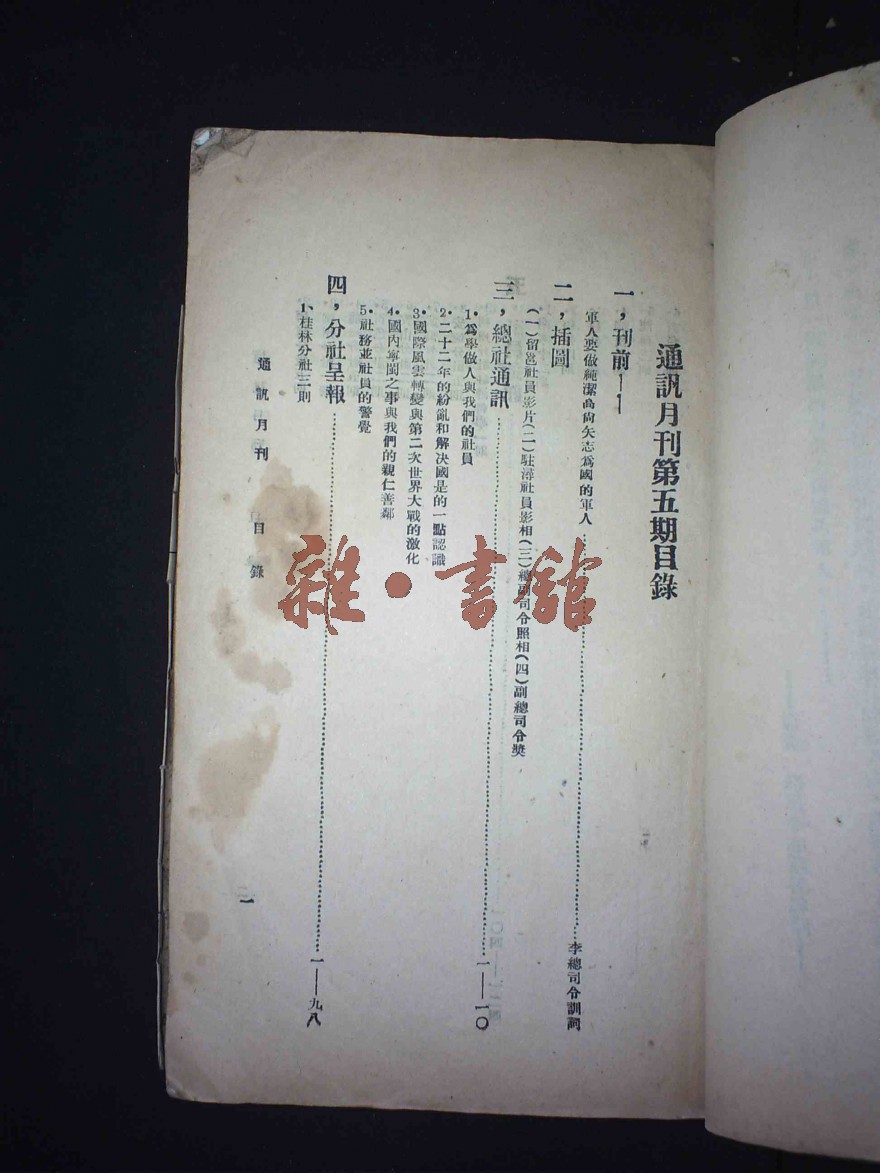 通訊月刊第五期目錄
一，刊前——1
軍人要做純潔高尚矢志爲國的軍人……李總司令訓詞
二，插圖
(一)留邕社員影片(二)駐潯社員影相(三)總副司令照相(四)副總司令獎
三，總社通訊……一——一〇
1.爲學做人與我們的社員
2.二十二年的紛亂和解決國是的一點認識
3.國際風雲轉變與第二次世界大戰的激化
4.國內寧閩之事與我們的親仁善鄰
5.社務並社員的警覺
四，分社呈報……一——九八
1、桂林分社三則
通訊月刊 目錄
一
雜·書館